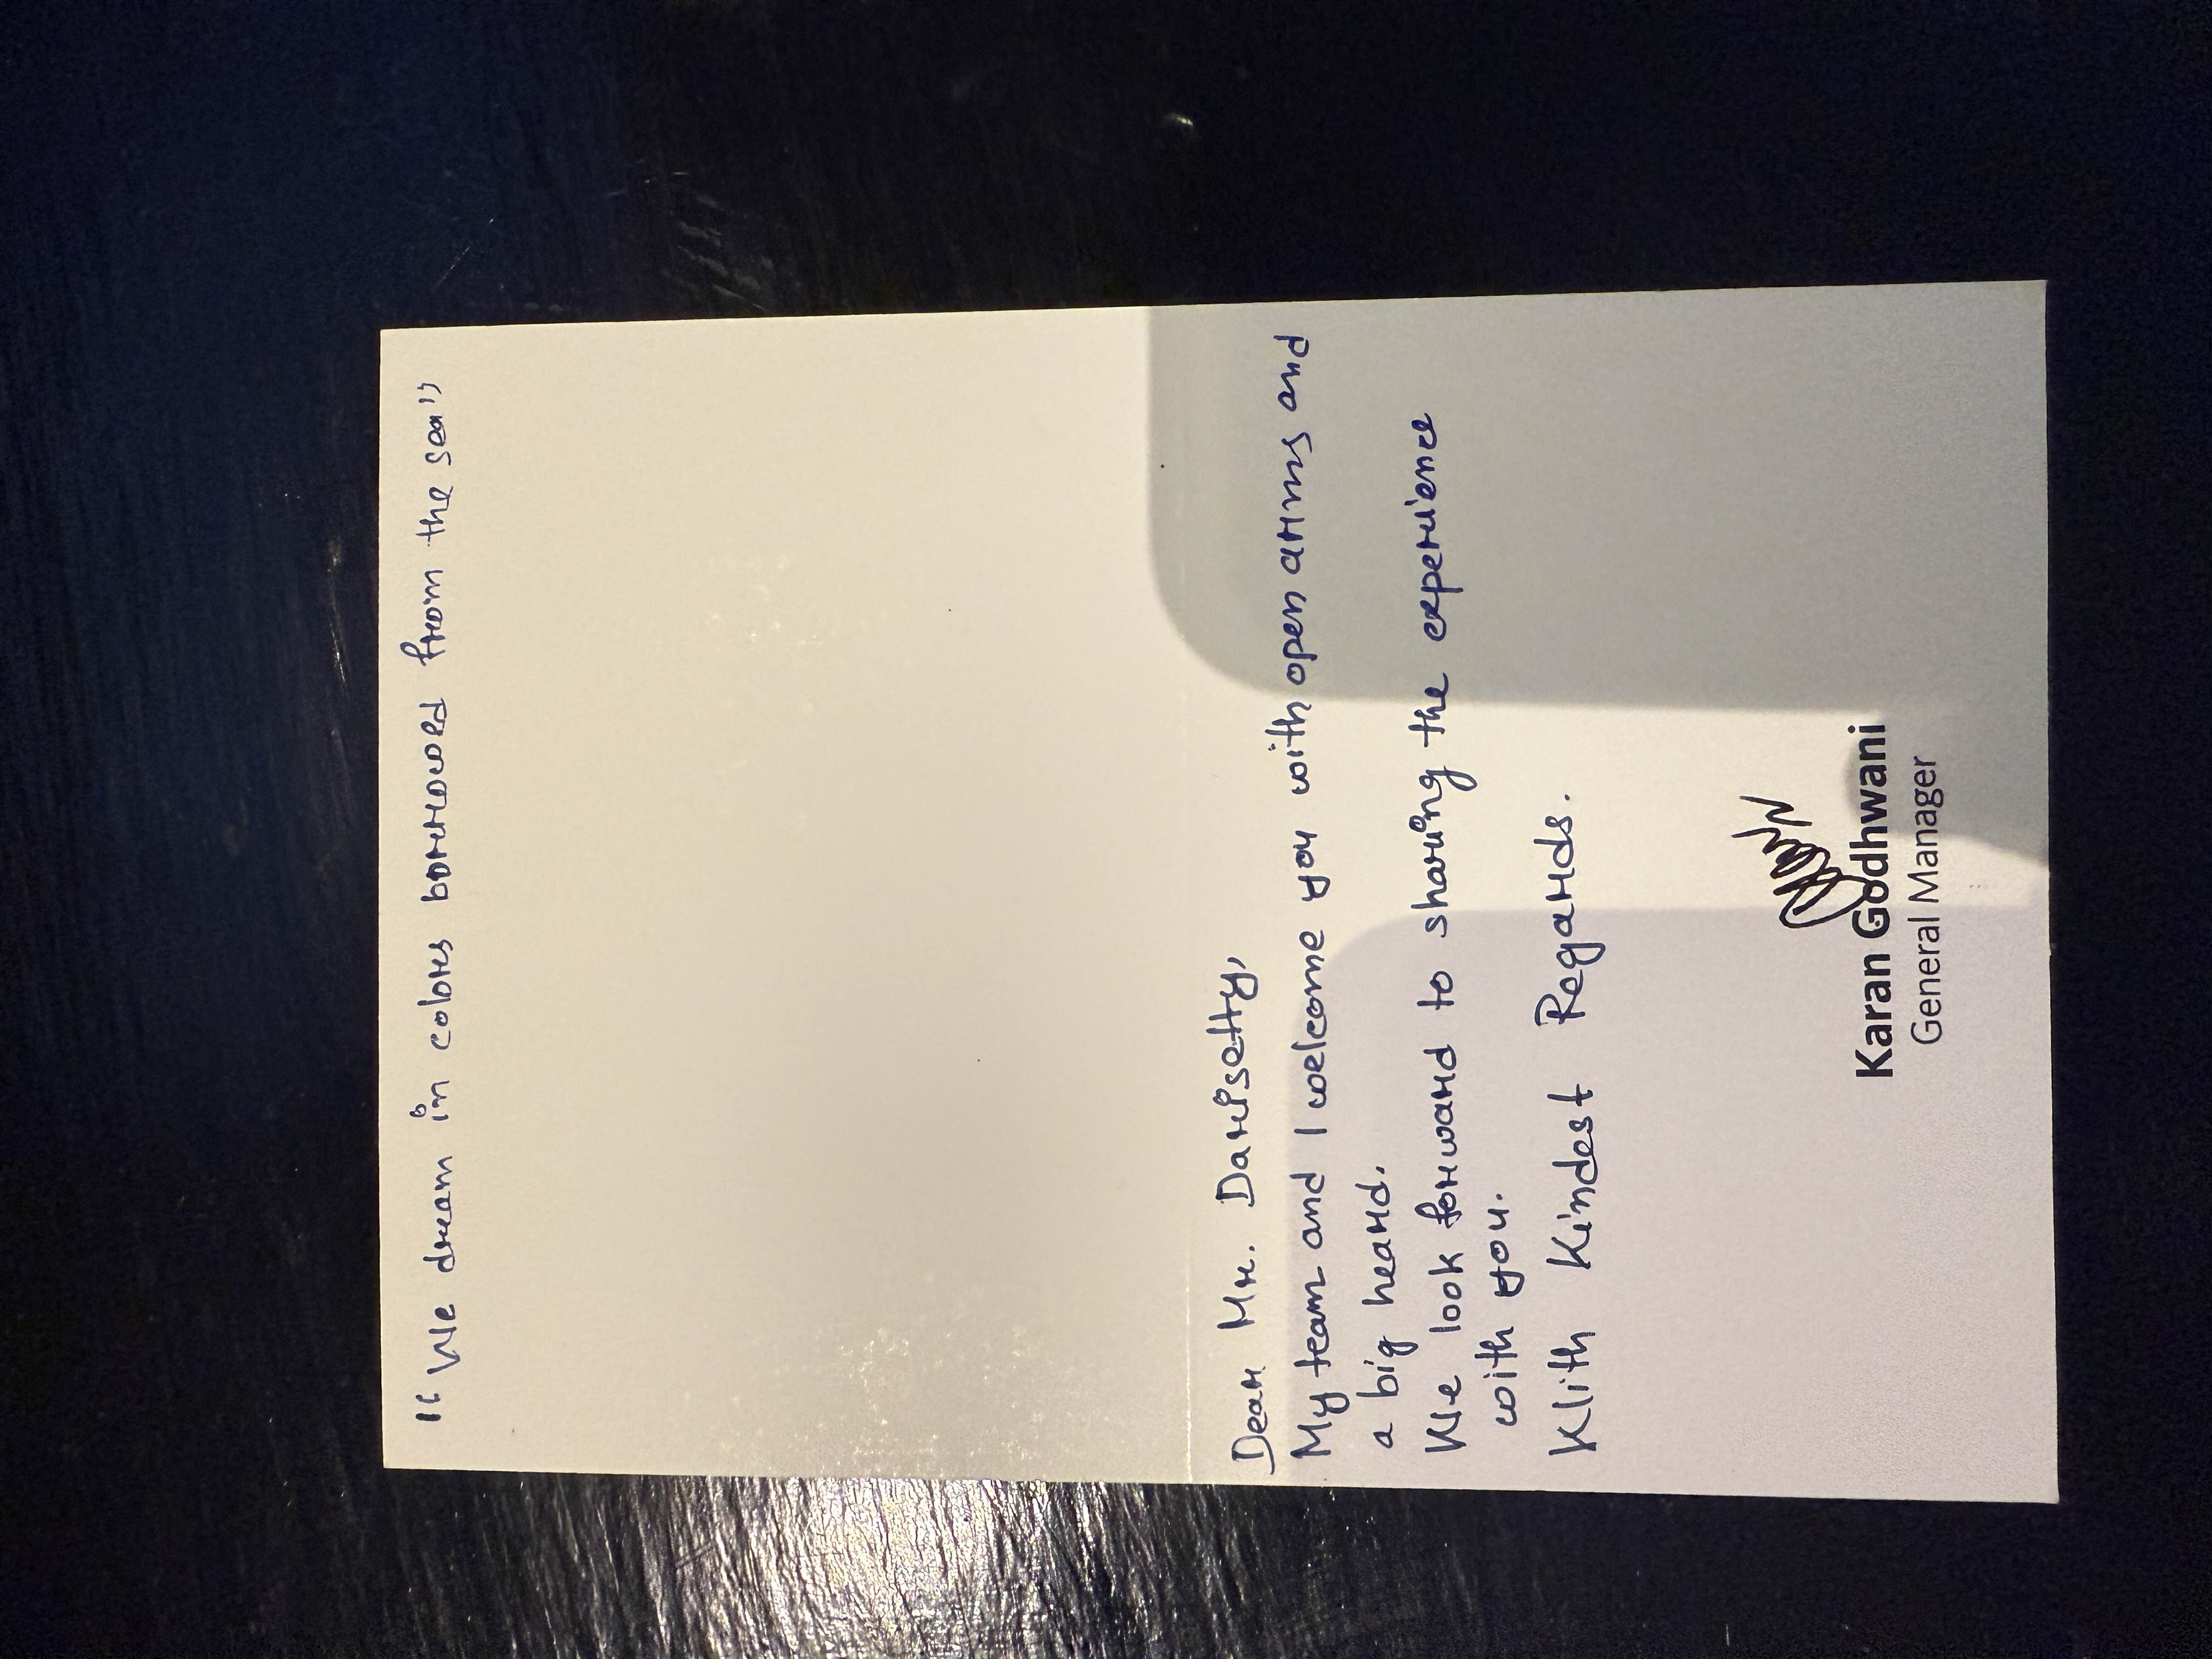 "We dream in colors borrowed from the sea"
Dear Mr. Darisetty,
My team and I welcome you with open arms and
a big heard.
We look forward to sharing the experience
with you.
With Kindest Regards.
Karan Godhwani
General Manager